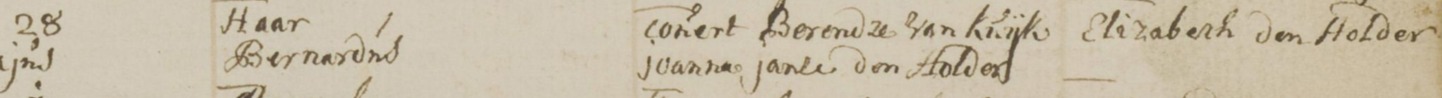 28 Haar Coñert Berendze Van Kuijk Elizabeth den Holder
ijnś Bernardńs joanna janse den Holder